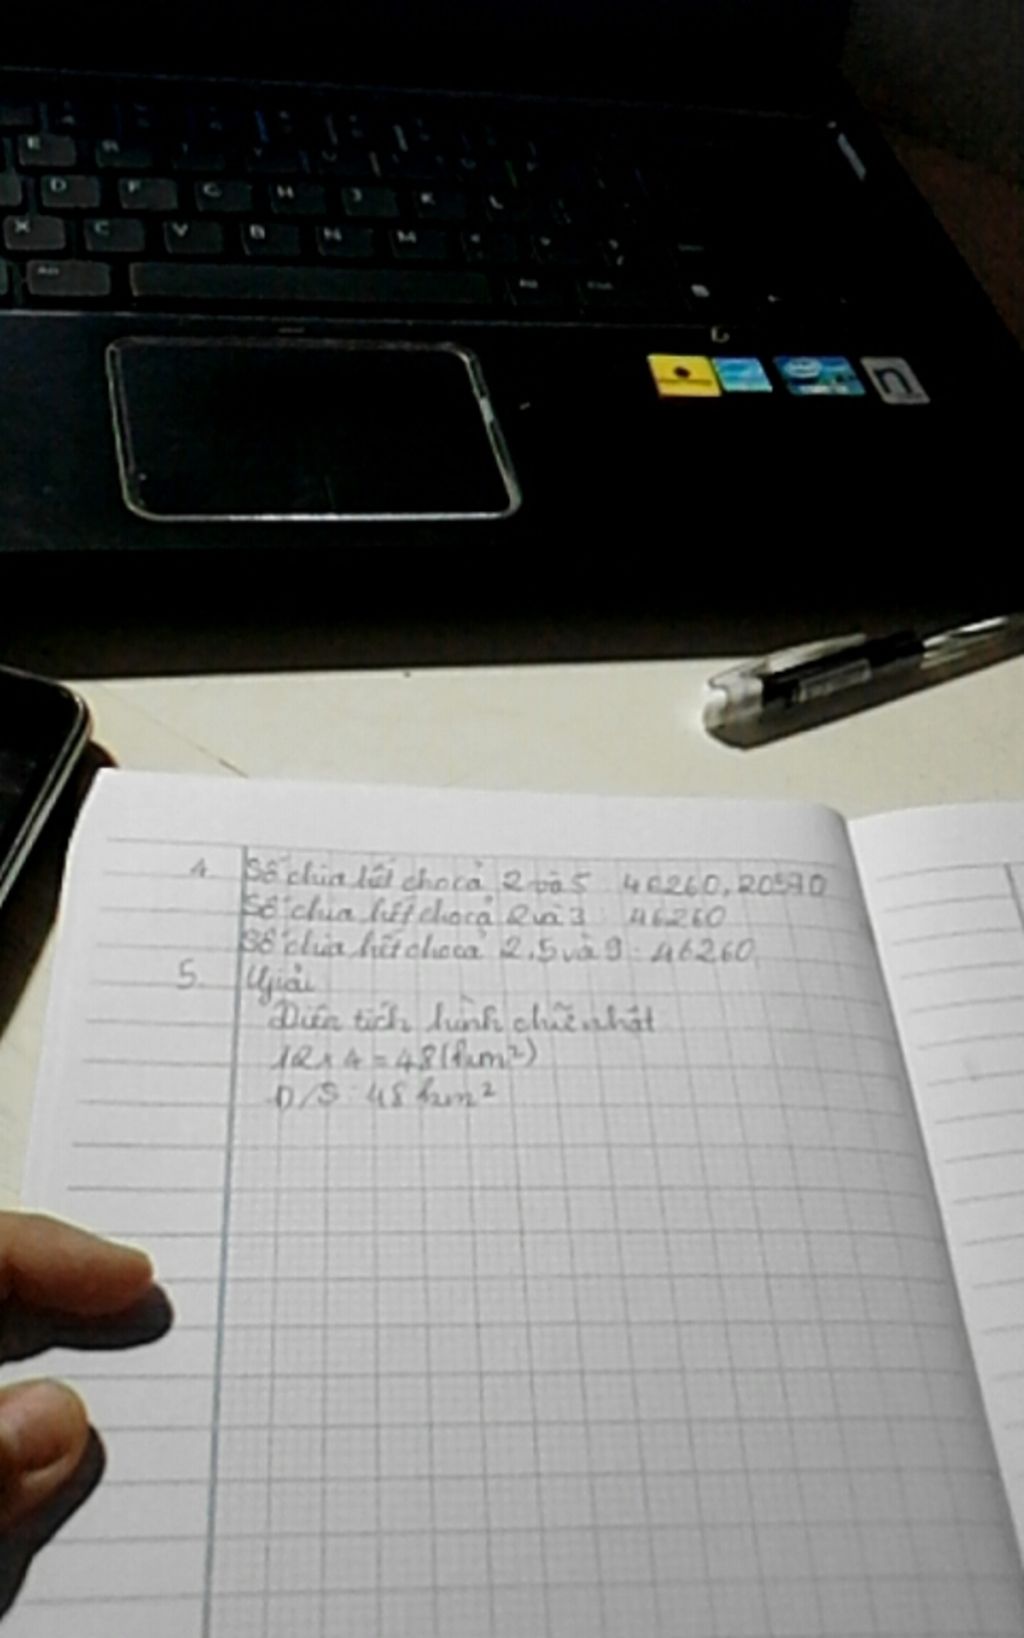 E R
D F G H J K L
X C V B N M
4. Số chia hết cho cả 2 và 5: 46260, 20570
Số chia hết cho cả 2 và 3: 46260
Số chia hết cho cả 2, 5 và 9: 46260
5. Giải
Diện tích hình chữ nhật
12 x 4 = 48 (km²)
Đ/S: 48 km²